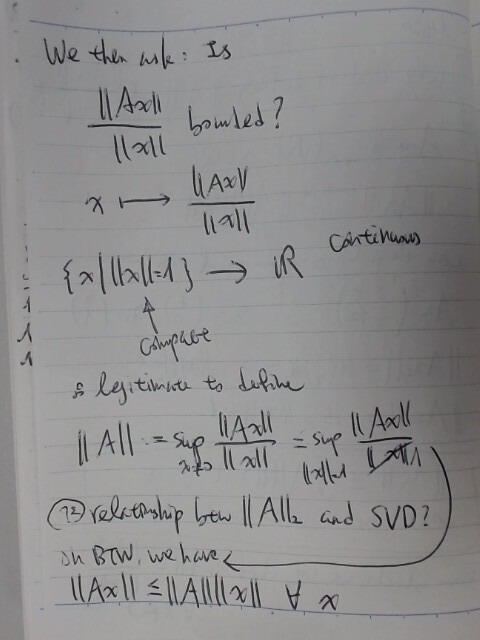 We then ask: Is
||Ax|| / ||x|| bounded?
x ⟼ ||Ax|| / ||x||
{x | ||x||=1} → ℝ continuous
↑
compact
∴ legitimate to define
||A|| := sup_{x≠0} ||Ax|| / ||x|| = sup_{||x||=1} ||Ax|| / ||x||
relationship btw ||A||₂ and SVD?
BTW, we have
||Ax|| ≤ ||A|| ||x|| ∀ x